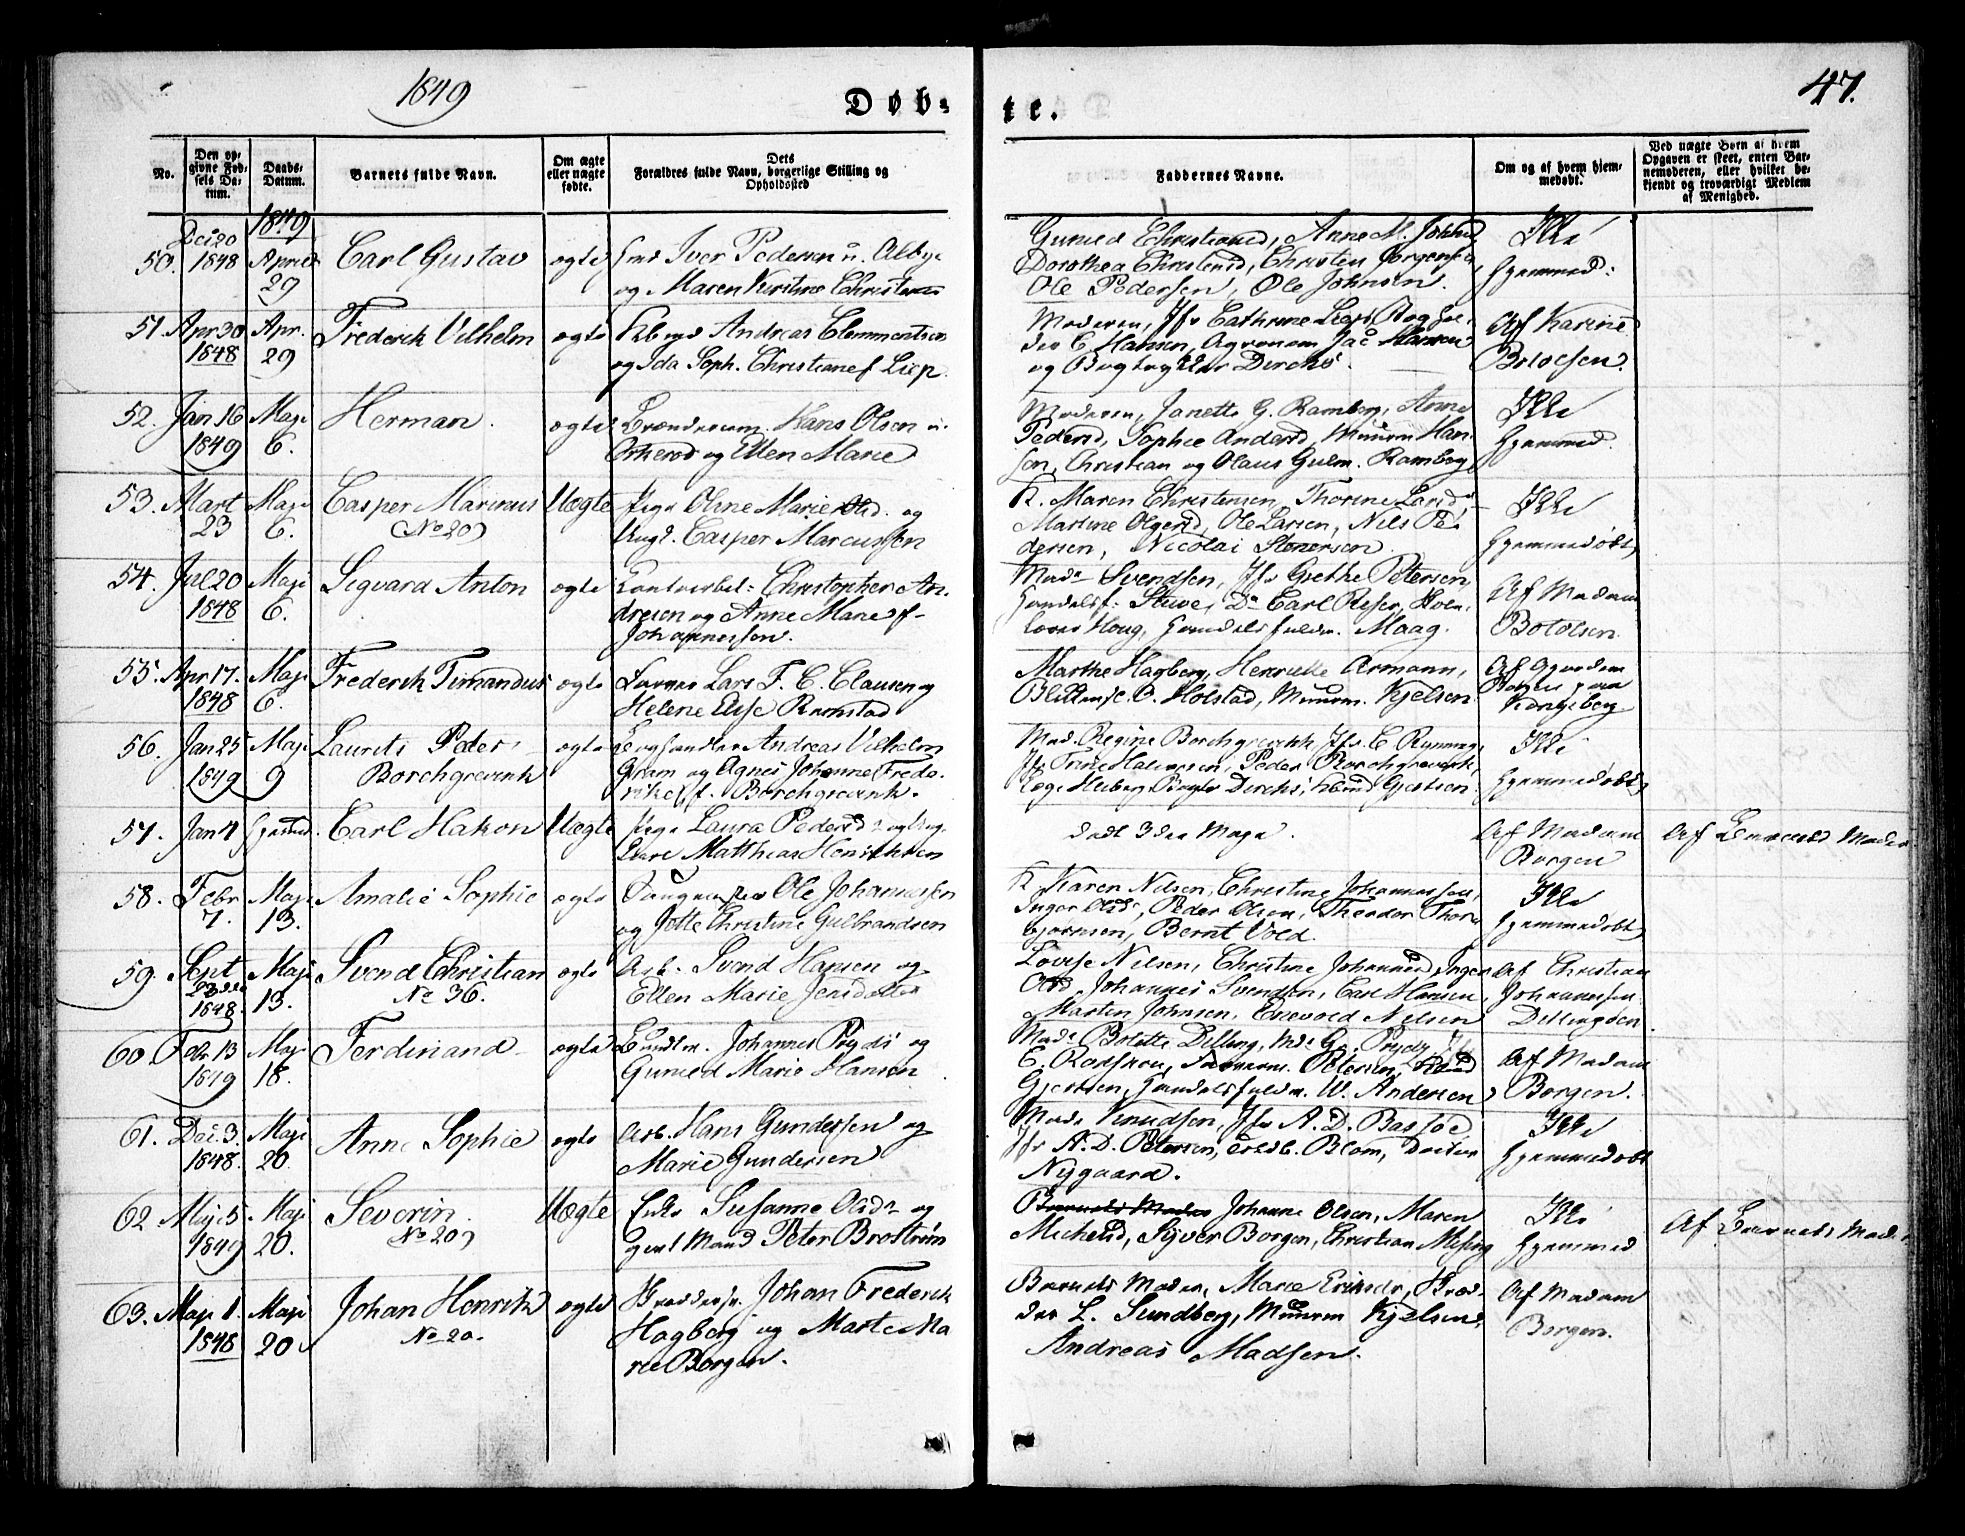 1849
47.
Døb-
te.
No.
Den op-
givne Fød-
sels Da-
tum.
Daabs-
Datum.
Barnets fulde Navn.
Om ægte
eller uægte
fødte.
Dets
Forældres fulde Navn, borgerlige Stilling og
Opholdssted
Faddernes Navne.
Om og af hvem hjem-
medøbt.
Ved uægte Børn af hvem
Opgaven er skeet, enten Bar-
nemoderen, eller hvilket be-
kjendt og troværdigt Medlem
af Menighed.
50. Dec 20
1848
1849
April
29
Carl Gustav
ægte
Iver Pedersen
og Maren Kirstine
Gunild Anne M.
Dorothea Christen Jørgensen
Ole Pedersen, Ole Johnsen.
Ikke
hjemmed:
51. Apr 30
1848
Apr.
29
Frederik Vilhelm
ægte
Andreas Clemmentsen
og Ida Soph. Christiane f Liep
Moderen, Jfr Cathrine Liep,
C. Hansen, Jac Hansen
og Dircks.
Af Karine
Bolvesen.
52. Jan 16
1849
Maji
6.
Herman.
ægte
Hans Olsen
og Ellen Marie
Moderen, Janette G. Ramberg, Anne
Pedersd, Sophie Andersd, Muurm Han-
sen, Christian og Olaus Gulm. Ramberg
Ikke
hjemmed.
53. Mart
23
Maji
6.
Casper Marinus
No 20
Uægte
Pige Oline Marie Olsd. og
Ungk. Casper Marcussen
K. Maren Christensen, Thorine Larsd
Martine Ole Larsen, Nils Pe-
dersen, Nicolai Stenersen
Ikke
hjemmedøbt
54. Jul 20
1848
Maji
6.
Sigvard Anton
ægte
Christopher An-
dresen og Anne Marie f
Johannessen.
Mad Svendsen, Jfr Grethe Petersen,
Handelsf: Stuve, Do Carl
Houg, Handelsfuldm. Maag.
Af Madam
Bolvesen.
55. Apr 17.
1848
Maji
6.
Frederik Timandus
ægte
Lars F. C. Clausen og
Helene Else Ramstad
Marthe Hagberg, Henrikke Armann,
C. Holstad, Muurm. Kjelsen
Kongsberg
56. Jan 25
1849
Maji
9
Laurits Peder
Borchgrevink
ægte
Andreas Vilhelm
Gram og Agnes Johanne Frede-
rikke f. Borchgrevink.
Mad. Regine Borchgrevink Jfr C Rynning,
Jfr Trine Halvorsen, Peder Borchgrevink,
Heiberg, Dircks, Gjertsen
Ikke
hjemmedøbt
57. Jan 4
Carl Hakon
Uægte
Pige Laura Pedersd og
Matthias Henriksen
død 3die Maji.
Af Madam
Borgen
Af Barnets Moder
58. Febr
7.
Maji
13.
Amalie Sophie
ægte
Ole Johannessen
og Jotte Christine Gulbrandsen
K. Karen Nilsen, Christine Johannessen,
Inger Olsd, Peder Olsen, Theodor Thor-
bjørnsen, Bernt Vold.
Ikke
hjemmedøbt
59. Sept
23de
1848.
Maji
13.
Svend Christian
No 36.
ægte
Arb. Svend Hansen og
Ellen Marie Jensdatter
Lovise Nilsen, Christine Johannesd, Inger
Olsd Johannes Svendsen, Carl Hansen,
Morten Johnsen, Enevold Nilsen
Af Christian
Johannessen
Dillingøen.
60. Febr 13
1849
Maji
18.
Ferdinand
ægte
Johannes Prydz og
Gunild Marie Hansen
Mad. Bolette Dilling, Md. G. Prydz,
Petersen,
Gjertsen, Handelsfuldm. W. Andersen
Af Madam
Borgen.
61. Dec. 3.
1848.
Maji
20.
Anne Sophie
ægte
Arb. Hans Gundersen og
Marie Gundersen
Mad. Knudsen, Jfr A. D. Bastøe
Jfr A. D. Petersen, Blom, Doctor
Nygaard.
Ikke
hjemmedøbt
62 Maji 5
1849
Maji
20.
Severin.
No 20
Uægte
Enke Susanne Olsd og
givt Mand Peter Brostrøm
Barnets Moder Johanne Olsen, Maren
Michelsd, Syver Borgen, Christian Mysing
Ikke
hjemmed
Af Barnets Moder
63. Maji 1.
1848
Maji
20
Johan Henrik
No 20.
ægte
Johan Frederik
Hagberg og Marte Ma-
rie Borgen.
Barnets Moder, Marie Eriksdr,
L. Sundberg, Muurm Kjelsen,
Andreas Madsen.
Af Madam
Borgen.